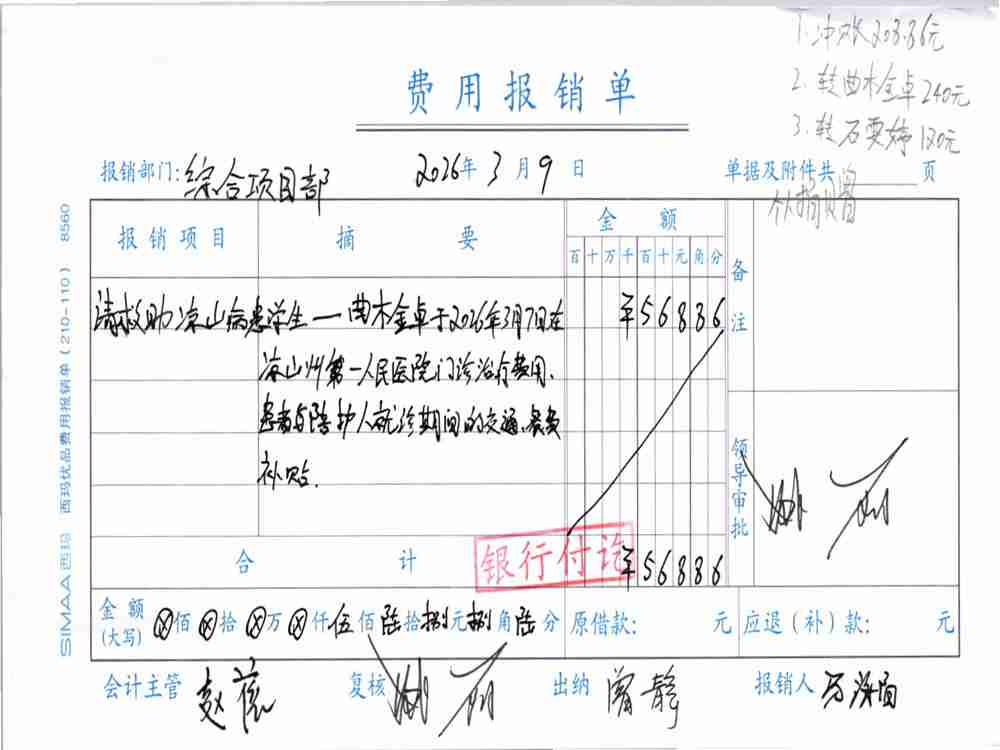 1.冲账208.86元
2.转曲木金卓240元
3.转石要婷120元
费用报销单
报销部门:综合项目部 2026年3月9日 单据及附件共 页
报销项目 摘要 金额 备注
百十万千百十元角分
请救助凉山病患学生—曲木金卓于2026年3月7日在 ¥56886
凉山州第一人民医院门诊治疗费用、
患者与陪护人就诊期间的交通、餐费
补贴.
领导审批
合计 银行付讫 ¥56886
金额(大写) ⊗佰⊗拾⊗万⊗仟伍佰陆拾捌元捌角陆分 原借款: 元 应退(补)款: 元
会计主管 复核 出纳 曾静 报销人
SIMAA西玛 西玛优品费用报销单(210-110) 8560